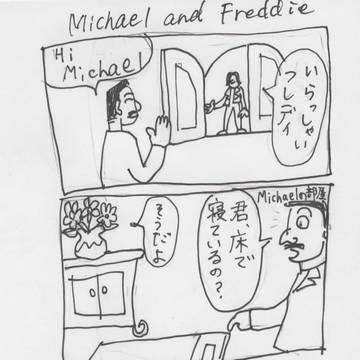 Michael and Freddie
Hi
Michael
いらっしゃい
フレディ
Michaelの部屋
君、床で
寝ているの?
そうだよ